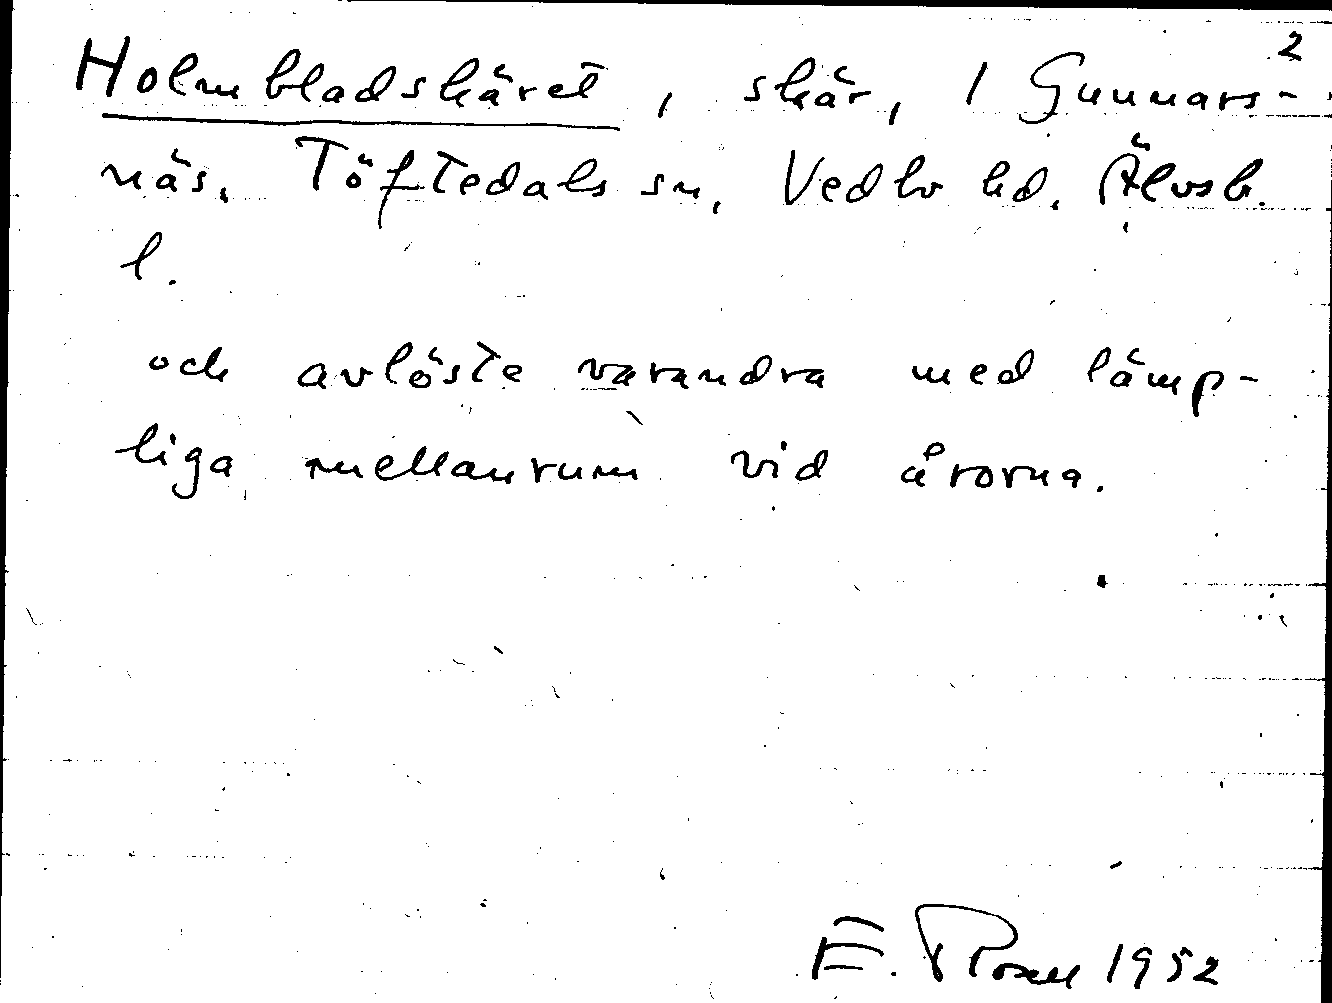 2
Holmbladskäret, skär, 1 Gunnars-
näs, Töftedals sn, Vedbo hd. Älvsb.
l.
och avlöste varandra med lämp-
liga mellanrum vid årorna.
E. Rosell 1952